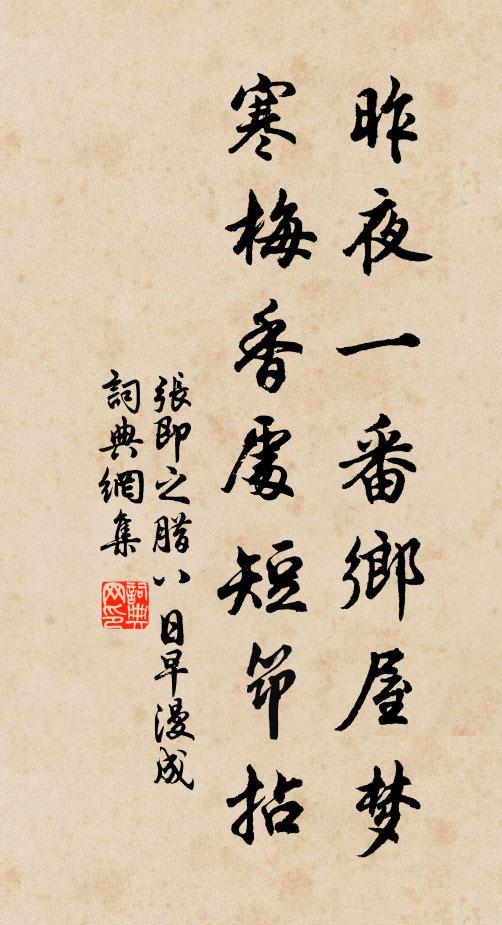 昨夜一番鄉屋梦
寒梅香處短筇拈
張即之腊八日早漫成
詞典網集
詞典
网印